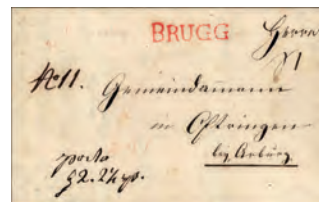 BRUGG Herrn
No 11. Gemeindammann
in Oftringen
bey Arburg
porto